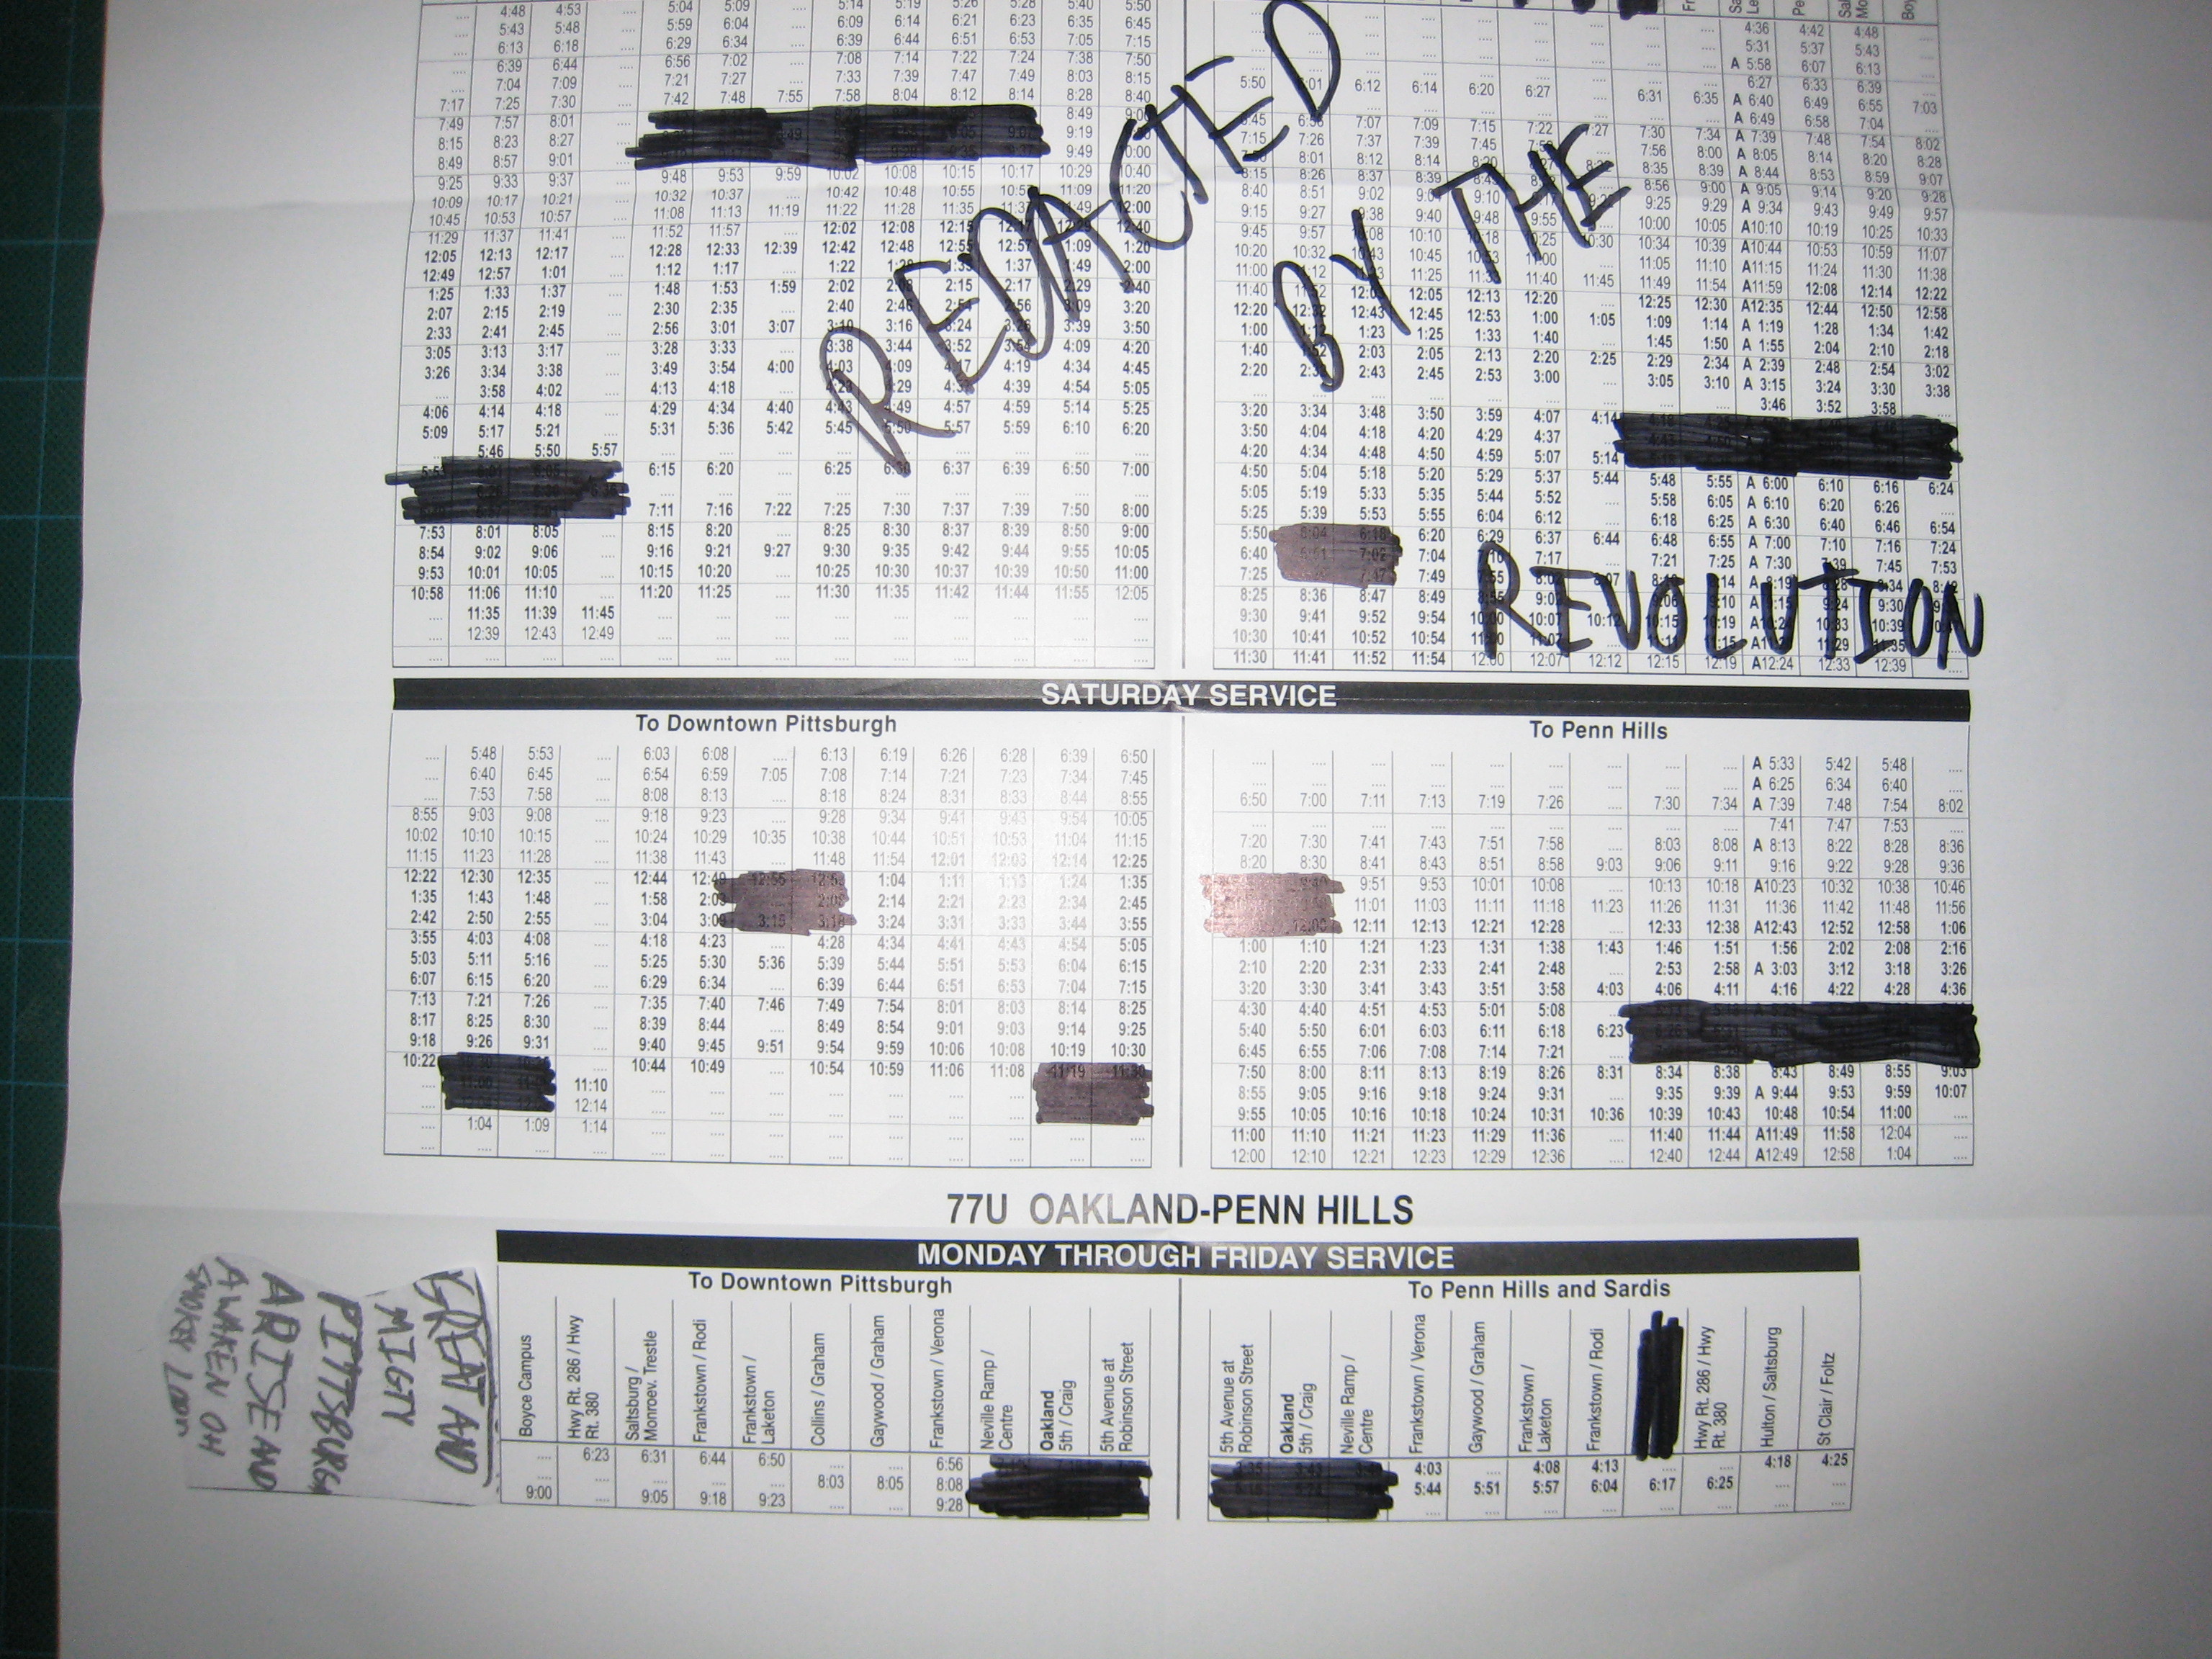 .... 4:48 4:53 .... 5:04 5:09 .... 5:14 5:19 5:26 5:28 5:40 5:50
.... 5:43 5:48 .... 5:59 6:04 .... 6:09 6:14 6:21 6:23 6:35 6:45
.... 6:13 6:18 .... 6:29 6:34 .... 6:39 6:44 6:51 6:53 7:05 7:15
.... 6:39 6:44 .... 6:56 7:02 .... 7:08 7:14 7:22 7:24 7:38 7:50
.... 7:04 7:09 .... 7:21 7:27 .... 7:33 7:39 7:47 7:49 8:03 8:15
7:17 7:25 7:30 .... 7:42 7:48 7:55 7:58 8:04 8:12 8:14 8:28 8:40
7:49 7:57 8:01 .... 8:49 9:00
8:15 8:23 8:27 .... 9:19
8:49 8:57 9:01 .... 9:49 10:00
9:25 9:33 9:37 .... 9:48 9:53 9:59 10:02 10:08 10:15 10:17 10:29 10:40
10:09 10:17 10:21 .... 10:32 10:37 .... 10:42 10:48 10:55 11:09 11:20
10:45 10:53 10:57 .... 11:08 11:13 11:19 11:22 11:28 11:35 11:37 11:49 12:00
11:29 11:37 11:41 .... 11:52 11:57 .... 12:02 12:08 12:15 12:17 12:40
12:05 12:13 12:17 .... 12:28 12:33 12:39 12:42 12:48 12:55 12:57 1:09 1:20
12:49 12:57 1:01 .... 1:12 1:17 .... 1:22 1:37 1:49 2:00
1:25 1:33 1:37 .... 1:48 1:53 1:59 2:02 2:15 2:17 2:29 2:40
2:07 2:15 2:19 .... 2:30 2:35 .... 2:40 2:46 2:54 2:56 3:09 3:20
2:33 2:41 2:45 .... 2:56 3:01 3:07 3:10 3:16 3:24 3:26 3:39 3:50
3:05 3:13 3:17 .... 3:28 3:33 .... 3:38 3:44 3:52 3:54 4:09 4:20
3:26 3:34 3:38 .... 3:49 3:54 4:00 4:03 4:09 4:17 4:19 4:34 4:45
.... 3:58 4:02 .... 4:13 4:18 .... 4:23 4:29 4:39 4:54 5:05
4:06 4:14 4:18 .... 4:29 4:34 4:40 4:43 4:49 4:57 4:59 5:14 5:25
5:09 5:17 5:21 .... 5:31 5:36 5:42 5:45 5:50 5:57 5:59 6:10 6:20
.... 5:46 5:50 5:57 .... .... .... .... .... .... .... .... ....
5:53 6:15 6:20 .... 6:25 6:30 6:37 6:39 6:50 7:00
.... .... .... .... .... .... .... .... ....
7:11 7:16 7:22 7:25 7:30 7:37 7:39 7:50 8:00
7:53 8:01 8:05 .... 8:15 8:20 .... 8:25 8:30 8:37 8:39 8:50 9:00
8:54 9:02 9:06 .... 9:16 9:21 9:27 9:30 9:35 9:42 9:44 9:55 10:05
9:53 10:01 10:05 .... 10:15 10:20 .... 10:25 10:30 10:37 10:39 10:50 11:00
10:58 11:06 11:10 .... 11:20 11:25 .... 11:30 11:35 11:42 11:44 11:55 12:05
.... 11:35 11:39 11:45 .... .... .... .... .... .... .... .... ....
.... 12:39 12:43 12:49 .... .... .... .... .... .... .... .... ....
4:36 4:42 4:48
5:31 5:37 5:43
A 5:58 6:07 6:13
6:27 6:33 6:39
5:50 6:01 6:12 6:14 6:20 6:27 .... 6:31 6:35 A 6:40 6:49 6:55 7:03
A 6:49 6:58 7:04
6:45 6:56 7:07 7:09 7:15 7:22 7:27 7:30 7:34 A 7:39 7:48 7:54 8:02
7:15 7:26 7:37 7:39 7:45 7:56 8:00 A 8:05 8:14 8:20 8:28
8:01 8:12 8:14 8:20 8:35 8:39 A 8:44 8:53 8:59 9:07
8:15 8:26 8:37 8:39 8:56 9:00 A 9:05 9:14 9:20 9:28
8:40 8:51 9:02 9:10 9:25 9:29 A 9:34 9:43 9:49 9:57
9:15 9:27 9:38 9:40 9:48 9:55 10:00 10:05 A10:10 10:19 10:25 10:33
9:45 9:57 10:08 10:10 10:18 10:25 10:30 10:34 10:39 A10:44 10:53 10:59 11:07
10:20 10:32 10:43 10:45 10:53 11:00 11:05 11:10 A11:15 11:24 11:30 11:38
11:00 11:12 11:23 11:25 11:33 11:40 11:45 11:49 11:54 A11:59 12:08 12:14 12:22
11:40 11:52 12:03 12:05 12:13 12:20 .... 12:25 12:30 A12:35 12:44 12:50 12:58
12:20 12:32 12:43 12:45 12:53 1:00 1:05 1:09 1:14 A 1:19 1:28 1:34 1:42
1:00 1:12 1:23 1:25 1:33 1:40 .... 1:45 1:50 A 1:55 2:04 2:10 2:18
1:40 1:52 2:03 2:05 2:13 2:20 2:25 2:29 2:34 A 2:39 2:48 2:54 3:02
2:20 2:43 2:45 2:53 3:00 .... 3:05 3:10 A 3:15 3:24 3:30 3:38
3:46 3:52 3:58 ....
3:20 3:34 3:48 3:50 3:59 4:07 4:14
3:50 4:04 4:18 4:20 4:29 4:37
4:20 4:34 4:48 4:50 4:59 5:07 5:14
4:50 5:04 5:18 5:20 5:29 5:37 5:44 5:48 5:55 A 6:00 6:10 6:16 6:24
5:05 5:19 5:33 5:35 5:44 5:52 .... 5:58 6:05 A 6:10 6:20 6:26 ....
5:25 5:39 5:53 5:55 6:04 6:12 .... 6:18 6:25 A 6:30 6:40 6:46 6:54
5:50 6:04 6:18 6:20 6:29 6:37 6:44 6:48 6:55 A 7:00 7:10 7:16 7:24
6:40 6:51 7:02 7:04 7:10 7:17 .... 7:21 7:25 A 7:30 7:39 7:45 7:53
7:25 7:47 7:49 7:55 8:02 8:07 8:14 A 8:19 8:28 8:34 8:42
8:25 8:36 8:47 8:49 8:55 9:02 9:06 9:10 A 9:15 9:24 9:30
9:30 9:41 9:52 9:54 10:00 10:07 10:12 10:15 10:19 A10:24 10:33 10:39
10:30 10:41 10:52 10:54 11:00 11:07 11:11 11:15 11:29 11:35
11:30 11:41 11:52 11:54 12:00 12:07 12:12 12:15 12:19 A12:24 12:33 12:39 ....
REDACTED
BY THE
REVOLUTION
SATURDAY SERVICE
To Downtown Pittsburgh
.... 5:48 5:53 .... 6:03 6:08 .... 6:13 6:19 6:26 6:28 6:39 6:50
.... 6:40 6:45 .... 6:54 6:59 7:05 7:08 7:14 7:21 7:23 7:34 7:45
.... 7:53 7:58 .... 8:08 8:13 .... 8:18 8:24 8:31 8:33 8:44 8:55
8:55 9:03 9:08 .... 9:18 9:23 .... 9:28 9:34 9:41 9:43 9:54 10:05
10:02 10:10 10:15 .... 10:24 10:29 10:35 10:38 10:44 10:51 10:53 11:04 11:15
11:15 11:23 11:28 .... 11:38 11:43 .... 11:48 11:54 12:01 12:03 12:14 12:25
12:22 12:30 12:35 .... 12:44 12:49 12:55 1:04 1:11 1:13 1:24 1:35
1:35 1:43 1:48 .... 1:58 2:03 .... 2:14 2:21 2:23 2:34 2:45
2:42 2:50 2:55 .... 3:04 3:09 3:15 3:18 3:24 3:31 3:33 3:44 3:55
3:55 4:03 4:08 .... 4:18 4:23 .... 4:28 4:34 4:41 4:43 4:54 5:05
5:03 5:11 5:16 .... 5:25 5:30 5:36 5:39 5:44 5:51 5:53 6:04 6:15
6:07 6:15 6:20 .... 6:29 6:34 .... 6:39 6:44 6:51 6:53 7:04 7:15
7:13 7:21 7:26 .... 7:35 7:40 7:46 7:49 7:54 8:01 8:03 8:14 8:25
8:17 8:25 8:30 .... 8:39 8:44 .... 8:49 8:54 9:01 9:03 9:14 9:25
9:18 9:26 9:31 .... 9:40 9:45 9:51 9:54 9:59 10:06 10:08 10:19 10:30
10:22 .... 10:44 10:49 .... 10:54 10:59 11:06 11:08 11:19 11:30
.... 11:10 .... .... .... .... .... .... ....
.... 12:14 .... .... .... .... .... .... ....
.... 1:04 1:09 1:14 .... .... .... .... .... .... .... .... ....
To Penn Hills
.... .... .... .... .... .... .... .... .... A 5:33 5:42 5:48 ....
.... .... .... .... .... .... .... .... .... A 6:25 6:34 6:40 ....
6:50 7:00 7:11 7:13 7:19 7:26 .... 7:30 7:34 A 7:39 7:48 7:54 8:02
.... .... .... .... .... .... .... .... .... 7:41 7:47 7:53 ....
7:20 7:30 7:41 7:43 7:51 7:58 .... 8:03 8:08 A 8:13 8:22 8:28 8:36
8:20 8:30 8:41 8:43 8:51 8:58 9:03 9:06 9:11 9:16 9:22 9:28 9:36
9:51 9:53 10:01 10:08 .... 10:13 10:18 A10:23 10:32 10:38 10:46
11:01 11:03 11:11 11:18 11:23 11:26 11:31 11:36 11:42 11:48 11:56
12:00 12:11 12:13 12:21 12:28 .... 12:33 12:38 A12:43 12:52 12:58 1:06
1:00 1:10 1:21 1:23 1:31 1:38 1:43 1:46 1:51 1:56 2:02 2:08 2:16
2:10 2:20 2:31 2:33 2:41 2:48 .... 2:53 2:58 A 3:03 3:12 3:18 3:26
3:20 3:30 3:41 3:43 3:51 3:58 4:03 4:06 4:11 4:16 4:22 4:28 4:36
4:30 4:40 4:51 4:53 5:01 5:08 ....
5:40 5:50 6:01 6:03 6:11 6:18 6:23
6:45 6:55 7:06 7:08 7:14 7:21 ....
7:50 8:00 8:11 8:13 8:19 8:26 8:31 8:34 8:38 8:43 8:49 8:55 9:03
8:55 9:05 9:16 9:18 9:24 9:31 .... 9:35 9:39 A 9:44 9:53 9:59 10:07
9:55 10:05 10:16 10:18 10:24 10:31 10:36 10:39 10:43 10:48 10:54 11:00 ....
11:00 11:10 11:21 11:23 11:29 11:36 .... 11:40 11:44 A11:49 11:58 12:04 ....
12:00 12:10 12:21 12:23 12:29 12:36 .... 12:40 12:44 A12:49 12:58 1:04 ....
77U OAKLAND-PENN HILLS
MONDAY THROUGH FRIDAY SERVICE
To Downtown Pittsburgh
Boyce Campus
Hwy Rt. 286 / Hwy
Rt. 380
Saltsburg /
Monroev. Trestle
Frankstown / Rodi
Frankstown /
Laketon
Collins / Graham
Gaywood / Graham
Frankstown / Verona
Neville Ramp /
Centre
Oakland
5th / Craig
5th Avenue at
Robinson Street
.... 6:23 6:31 6:44 6:50 .... .... 6:56
.... .... .... .... .... 8:03 8:05 8:08
9:00 .... 9:05 9:18 9:23 .... .... 9:28
To Penn Hills and Sardis
5th Avenue at
Robinson Street
Oakland
5th / Craig
Neville Ramp /
Centre
Frankstown / Verona
Gaywood / Graham
Frankstown /
Laketon
Frankstown / Rodi
Hwy Rt. 286 / Hwy
Rt. 380
Hulton / Saltsburg
St Clair / Foltz
4:03 .... 4:08 4:13 .... .... 4:18 4:25
5:44 5:51 5:57 6:04 6:17 6:25 .... ....
.... .... .... .... .... .... .... ....
GREAT AND
MIGTY
PITTSBURGH
ARISE AND
AWAKEN OH
SMOKEY LOON